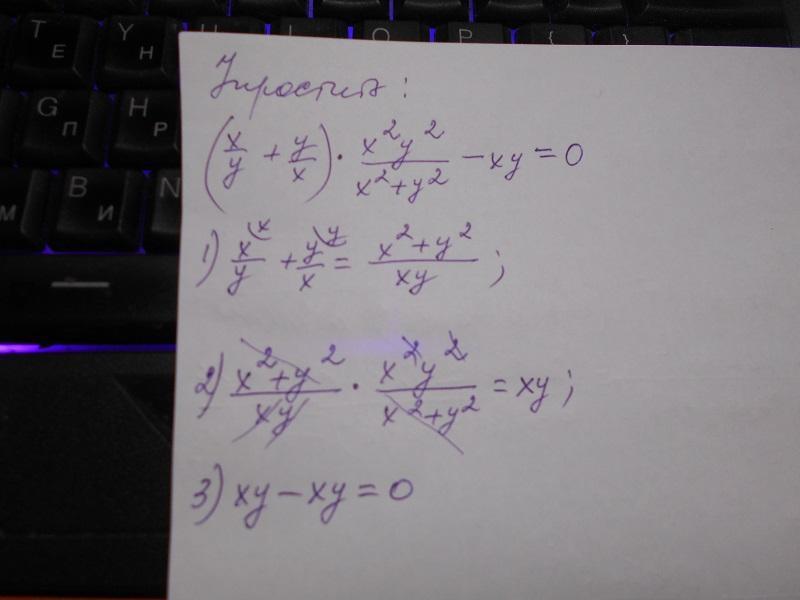 T Y U I O P { }
Е Н
G H
П Р
B N
М И
Упростить:
(x/y + y/x) · x²y²/(x²+y²) − xy = 0
1) x^(x/y + y^(y/x = (x²+y²)/(xy);
2) (x²+y²)/(xy) · x²y²/(x²+y²) = xy;
3) xy − xy = 0